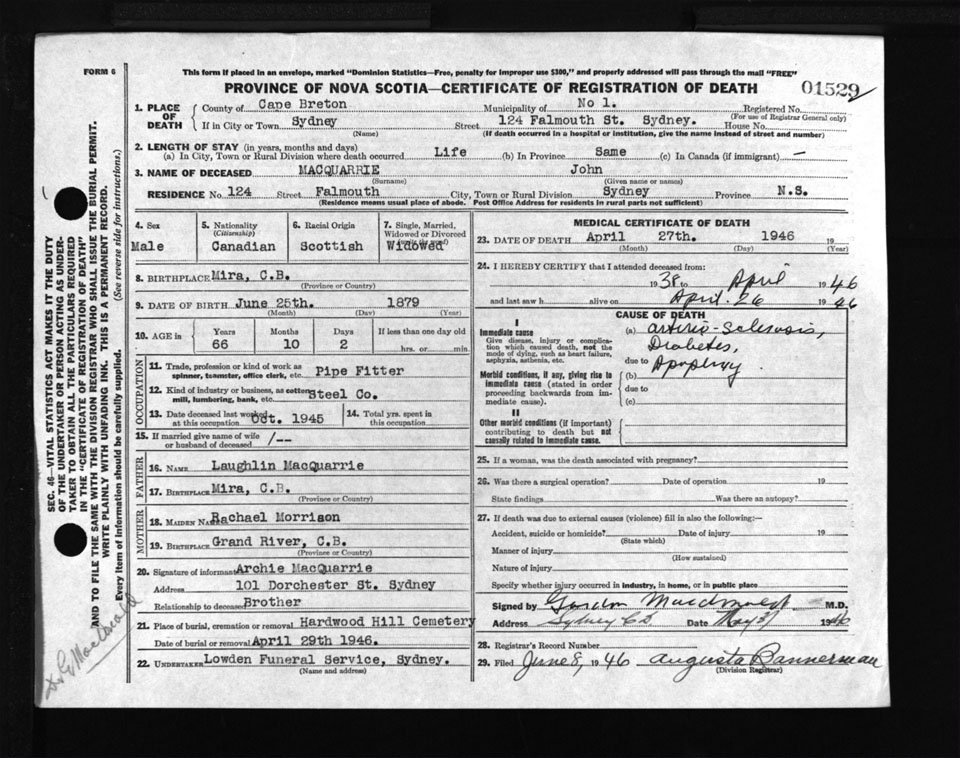 FORM 6
This form if placed in an envelope, marked "Dominion Statistics—Free, penalty for improper use $300," and properly addressed will pass through the mail "FREE"
PROVINCE OF NOVA SCOTIA—CERTIFICATE OF REGISTRATION OF DEATH
01529
1. PLACE OF DEATH
County of Cape Breton Municipality of No 1. Registered No.
(For use of Registrar General only)
If in City or Town Sydney Street 124 Falmouth St. Sydney. House No.
(Name) (If death occurred in a hospital or institution, give the name instead of street and number)
2. LENGTH OF STAY (in years, months and days)
(a) In City, Town or Rural Division where death occurred Life (b) In Province Same (c) In Canada (if immigrant) —
3. NAME OF DECEASED MACQUARRIE John
(Surname) (Given name or names)
RESIDENCE No. 124 Street Falmouth City, Town or Rural Division Sydney Province N.S.
(Residence means usual place of abode. Post Office Address for residents in rural parts not sufficient)
4. Sex
Male
5. Nationality
(Citizenship)
Canadian
6. Racial Origin
Scottish
7. Single, Married, Widowed or Divorced
Widowed
8. BIRTHPLACE Mira, C.B.
(Province or Country)
9. DATE OF BIRTH June 25th. 1879
(Month) (Day) (Year)
10. AGE in
Years Months Days If less than one day old
66 10 2 hrs. or min.
OCCUPATION
11. Trade, profession or kind of work as spinner, teamster, office clerk, etc. Pipe Fitter
12. Kind of industry or business, as cotton mill, lumbering, bank, etc. Steel Co.
13. Date deceased last worked at this occupation Oct. 1945
14. Total yrs. spent in this occupation
15. If married give name of wife or husband of deceased /--
FATHER
16. NAME Laughlin MacQuarrie
17. BIRTHPLACE Mira, C.B.
(Province or Country)
MOTHER
18. MAIDEN NAME Rachael Morrison
19. BIRTHPLACE Grand River, C.B.
(Province or Country)
20. Signature of informant Archie MacQuarrie
Address 101 Dorchester St. Sydney
Relationship to deceased Brother
21. Place of burial, cremation or removal Hardwood Hill Cemetery
Date of burial or removal April 29th 1946.
22. UNDERTAKER Lowden Funeral Service, Sydney.
(Name and address)
MEDICAL CERTIFICATE OF DEATH
23. DATE OF DEATH April 27th. 1946 19
(Month) (Day) (Year)
24. I HEREBY CERTIFY that I attended deceased from:
1938 to April 1946
and last saw h alive on April 26 1946
CAUSE OF DEATH
I
Immediate cause
Give disease, injury or complication which caused death, not the mode of dying, such as heart failure, asphyxia, asthenia, etc.
(a) arterio-sclerosis,
Diabetes,
due to
Morbid conditions, if any, giving rise to immediate cause (stated in order proceeding backwards from immediate cause).
(b) Apoplexy.
due to
(c)
II
Other morbid conditions (if important) contributing to death but not causally related to immediate cause.
25. If a woman, was the death associated with pregnancy?
26. Was there a surgical operation? Date of operation 19
State findings Was there an autopsy?
27. If death was due to external causes (violence) fill in also the following:—
Accident, suicide or homicide? Date of injury 19
(State which)
Manner of injury
(How sustained)
Nature of injury
Specify whether injury occurred in industry, in home, or in public place
Signed by Gordon Macdonald M.D.
Address Sydney C B Date May 31 1946
28. Registrar's Record Number
29. Filed June 8, 1946 Augusta Bannerman
(Division Registrar)
SEC. 46—VITAL STATISTICS ACT MAKES IT THE DUTY
OF THE UNDERTAKER OR PERSON ACTING AS UNDER-
TAKER TO OBTAIN ALL THE PARTICULARS REQUIRED
IN THE "CERTIFICATE OF REGISTRATION OF DEATH"
AND TO FILE THE SAME WITH THE DIVISION REGISTRAR WHO SHALL ISSUE THE BURIAL PERMIT.
WRITE PLAINLY WITH UNFADING INK. THIS IS A PERMANENT RECORD.
Every item of information should be carefully supplied. (See reverse side for instructions.)
Dr G MacDonald